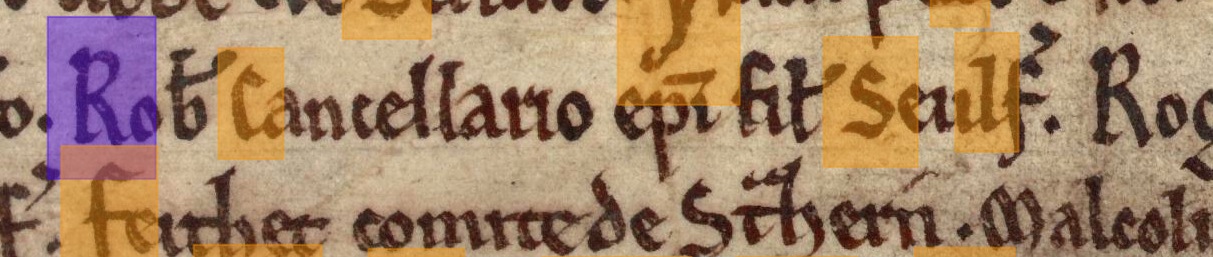 o. Rob̄ Cancellario ep̄i fil̄ Seulf̉. Rog
f̉. feither comite de St̄hern. Malcol